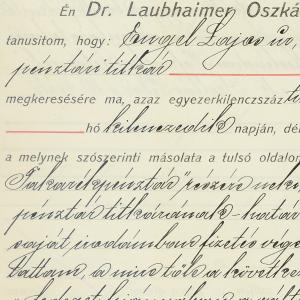 Én Dr. Laubhaimer Oszká
tanusitom, hogy: Engel Lajos úr,
pénztári titkár
megkeresésére ma, azaz egyezerkilenczszáz
hó kilenczedik napján, dél
a melynek szószerinti másolata a tulsó oldalon
Takarékpénztár" részére
pénztár titkárának - határ
saját irodámban fizetés vége
tattam, a mire tőle a követke